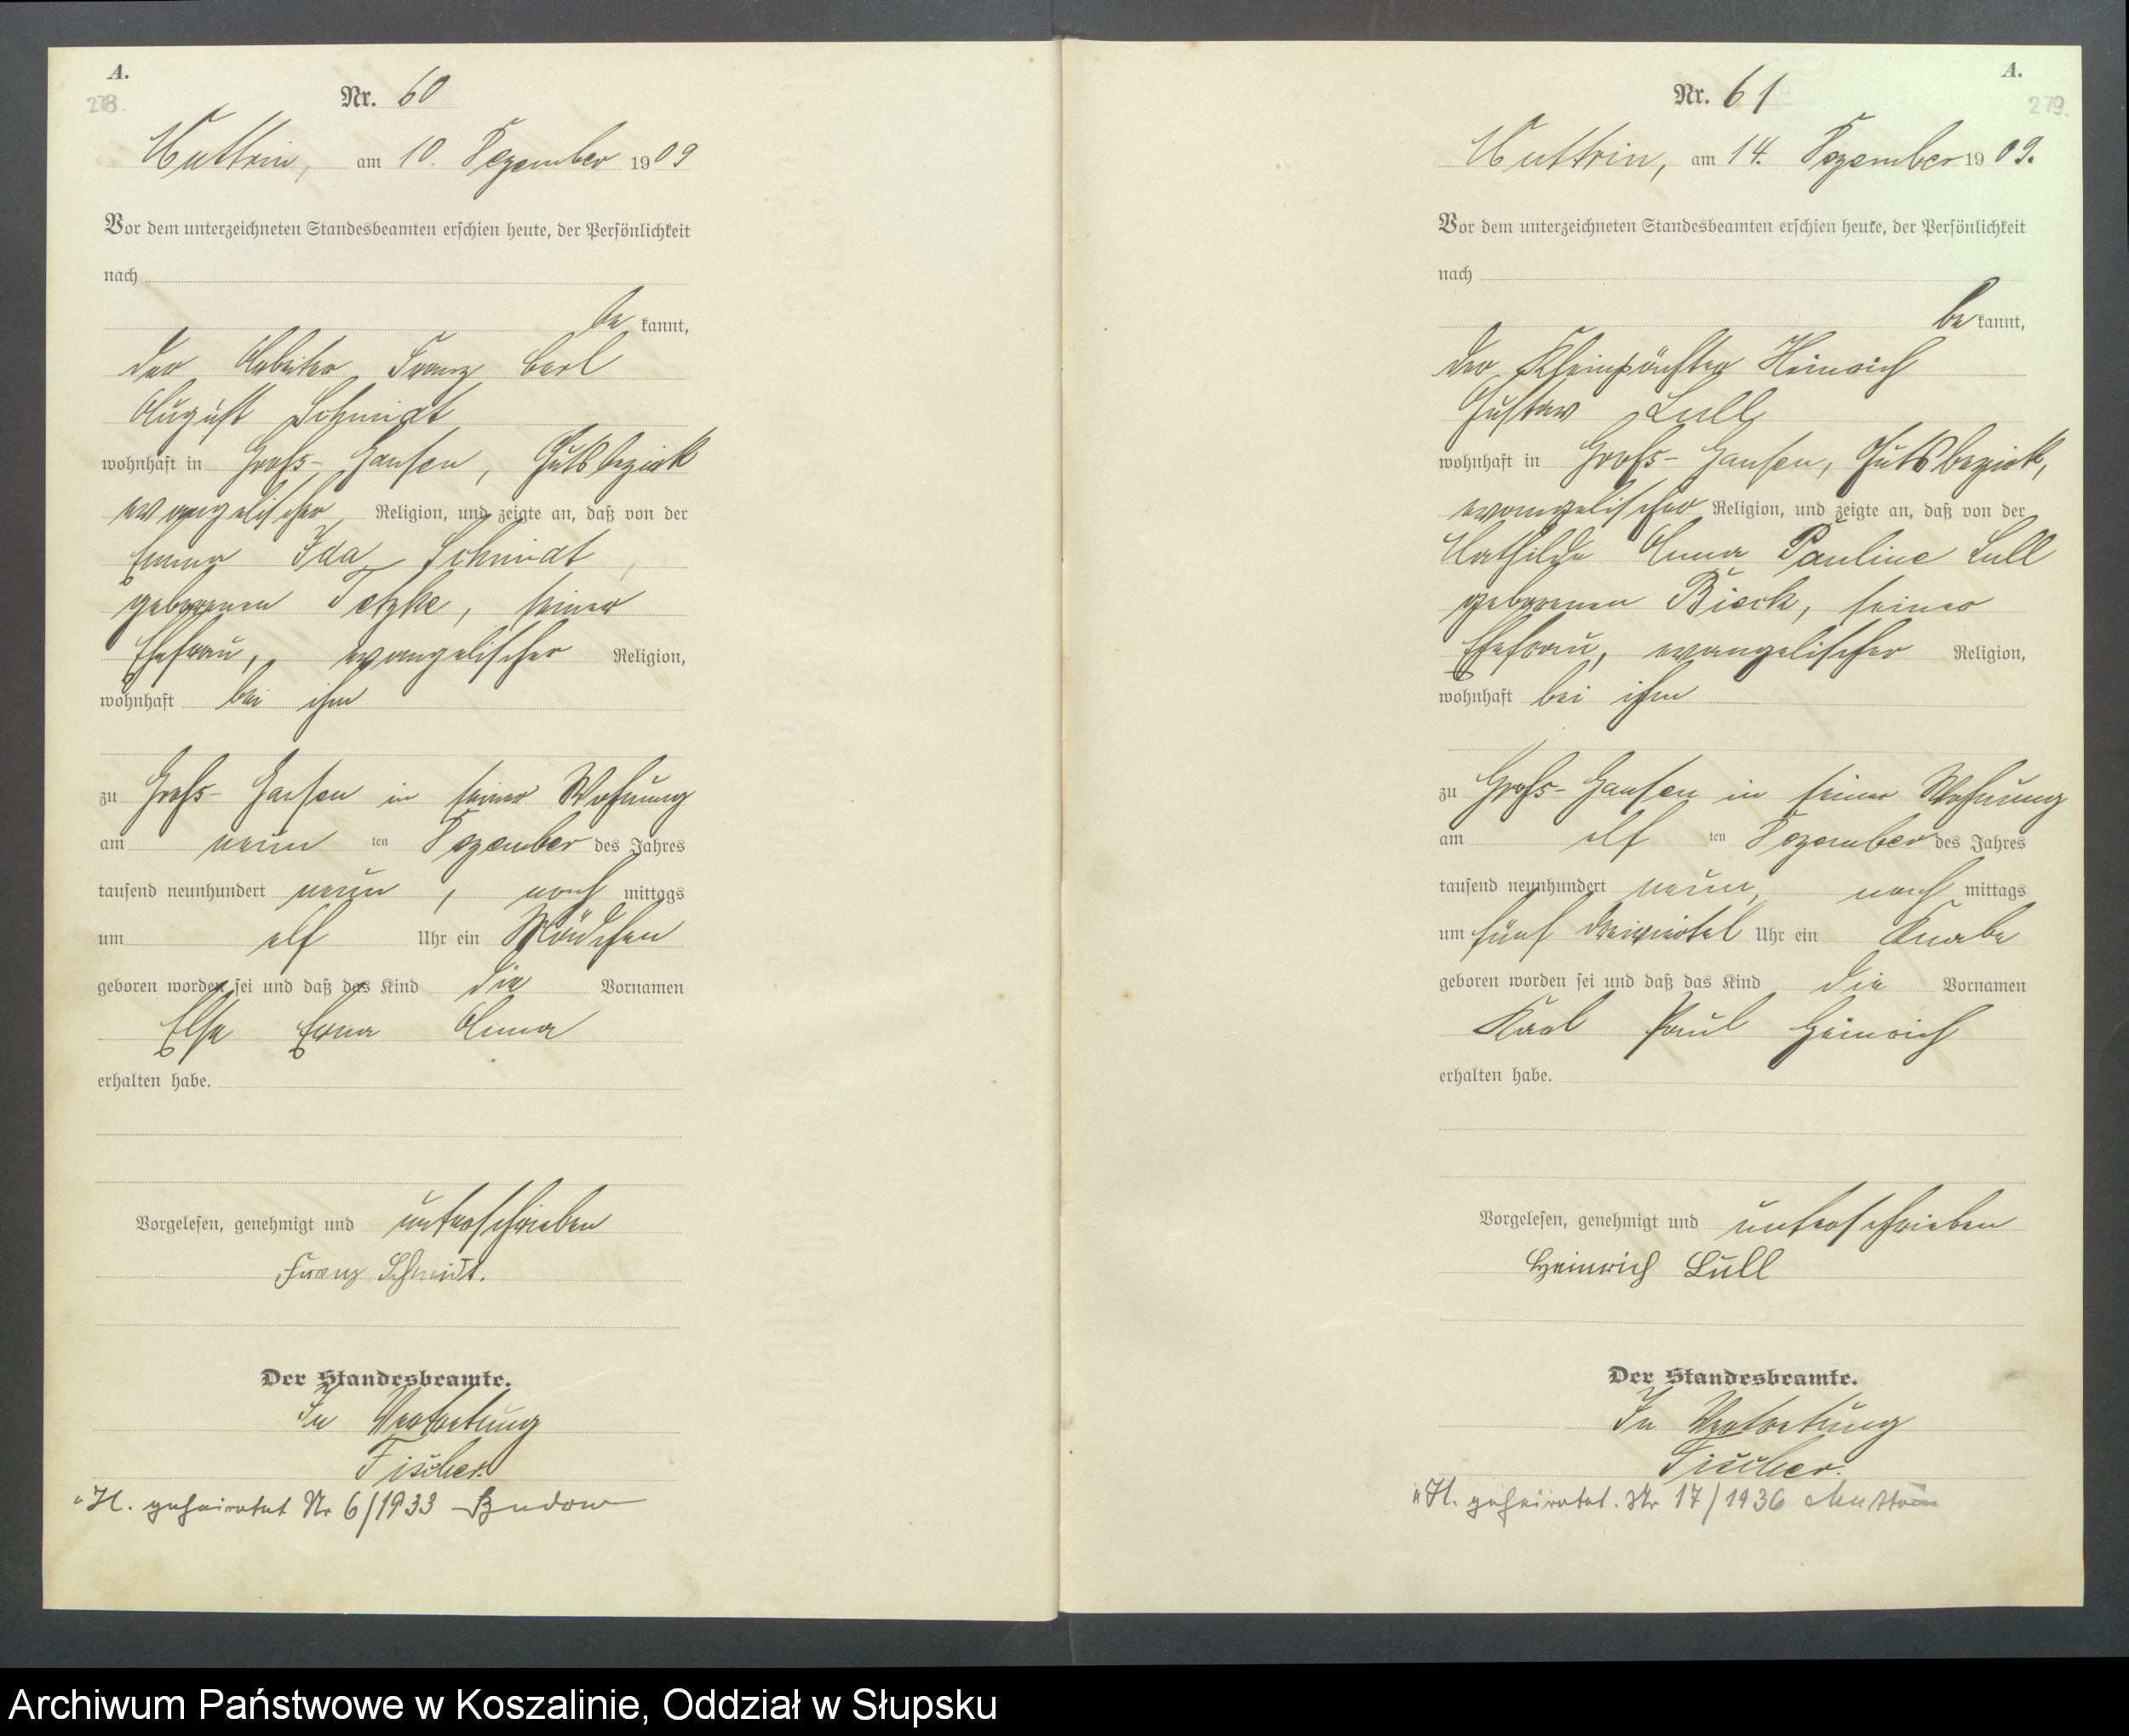 A.
278.
Nr. 60
Muttrin, am 10. Dezember 1909
Vor dem unterzeichneten Standesbeamten erschien heute, der Persönlichkeit
nach
be kannt,
der Arbeiter Franz Carl
August Schmidt
wohnhaft in Groß-Gansen, Gutsbezirk
evangelischer Religion, und zeigte an, daß von der
Emma Ida Schmidt,
geborenen Tetzke, seiner
Ehefrau, evangelischer Religion,
wohnhaft bei ihm
zu Groß-Gansen in seiner Wohnung
am neun ten Dezember des Jahres
tausend neunhundert neun, nach mittags
um elf Uhr ein Mädchen
geboren worden sei und daß das Kind die Vornamen
Else Erna Anna
erhalten habe.
Vorgelesen, genehmigt und unterschrieben
Franz Schmidt.
Der Standesbeamte.
In Vertretung
Fischer.
H. geheiratet Nr 6/1933 Budow
A.
279.
Nr. 61
Muttrin, am 14. Dezember 1909.
Vor dem unterzeichneten Standesbeamten erschien heute, der Persönlichkeit
nach
be kannt,
der Kleinpächter Heinrich
Gustav Lull
wohnhaft in Groß-Gansen, Gutsbezirk,
evangelischer Religion, und zeigte an, daß von der
Mathilde Anna Pauline Lull
geborenen Bieck, seiner
Ehefrau, evangelischer Religion,
wohnhaft bei ihm
zu Groß-Gansen in seiner Wohnung
am elf ten Dezember des Jahres
tausend neunhundert neun, nach mittags
um fünf dreiviertel Uhr ein Knabe
geboren worden sei und daß das Kind die Vornamen
Karl Paul Heinrich
erhalten habe.
Vorgelesen, genehmigt und unterschrieben
Heinrich Lull
Der Standesbeamte.
In Vertretung
Fischer.
H. geheiratet. Nr 17/1936 Muttrin
Archiwum Państwowe w Koszalinie, Oddział w Słupsku